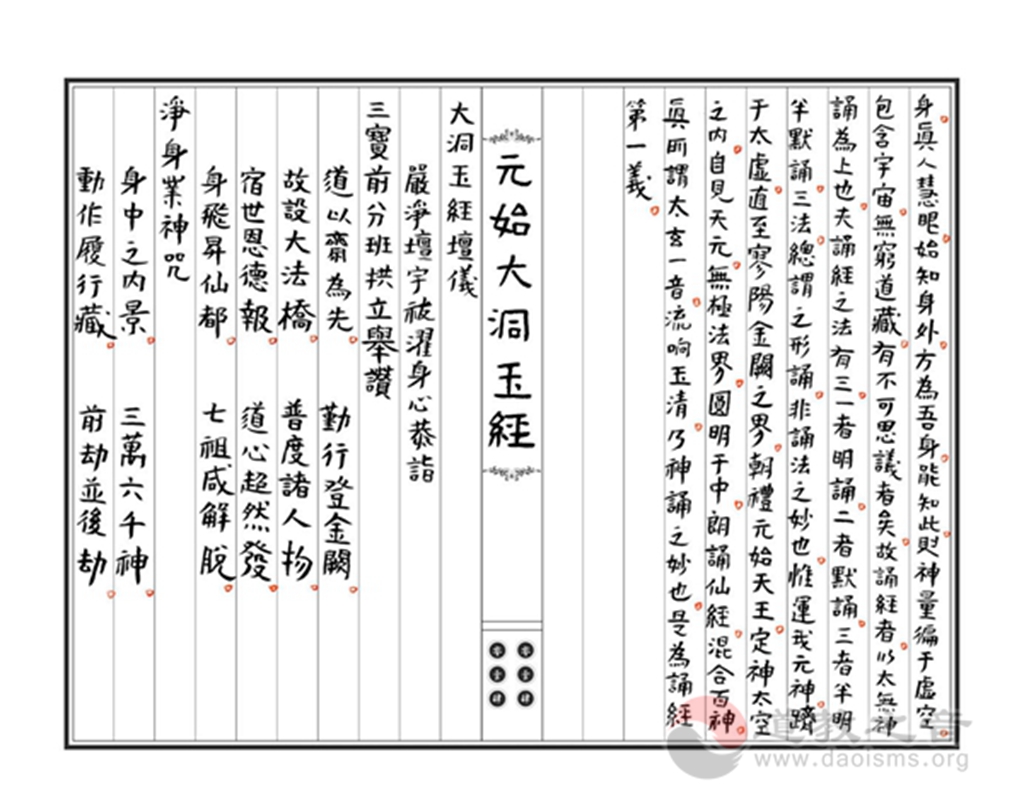 身眞人慧眼始知身外方為吾身能知此則神量徧于虛空
包含宇宙無窮道藏有不可思議者矣故誦經者以太無神
誦為上也夫誦經之法有三一者明誦二者默誦三者半明
半默誦三法總謂之形誦非誦法之妙也惟運我元神躋
于太虛直至寥陽金闕之界朝禮元始天王定神太空
之內自見天元無極法界圓明于中朗誦仙經混合百神
眞所謂太玄一音流响玉清乃神誦之妙也是為誦經
第一義
元始大洞玉經
大洞玉經壇儀
嚴淨壇宇祓濯身心恭詣
三寶前分班拱立舉讚
道以齋為先 勤行登金闕
故設大法橋 普度諸人物
宿世恩德報 道心超然發
身飛昇仙都 七祖咸解脫
淨身業神咒
身中之內景 三萬六千神
動作履行藏 前劫並後劫
道教之音
www.daoisms.org